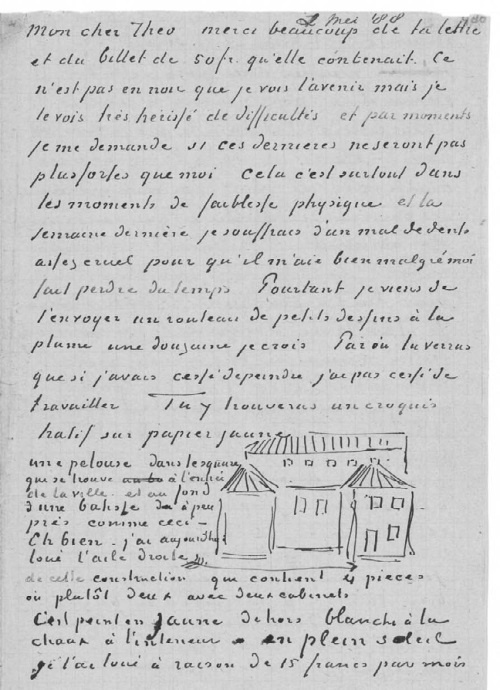 2 Mei '88
Mon cher Theo merci beaucoup de ta lettre
et du billet de 50 fr. qu'elle contenait. Ce
n'est pas en noir que je vois l'avenir mais je
le vois très hérissé de difficultés et par moments
je me demande si ces dernieres ne seront pas
plus fortes que moi Cela c'est surtout dans
les moments de faiblesse physique et la
semaine dernière je souffrais d'un mal de dents
assez cruel pour qu'il m'aie bien malgré moi
fait perdre du temps Pourtant je viens de
t'envoyer un rouleau de petits dessins à la
plume une douzaine je crois Par où tu verras
que si j'avais cessé de peindre j'ai pas cessé de
travailler Tu y trouveras un croquis
hatif sur papier jaune
une pelouse dans le square
qui se trouve à l'entrée
de la ville. et au fond
d'une batisse à peu
près comme ceci –
Eh bien – j'ai aujourd'hui
loué l'aile droite
de cette construction qui contient 4 pieces
ou plutôt deux avec deux cabinets
C'est peint en jaune dehors blanchi à la
chaux à l'interieur en plein soleil
je l'ai loué à raison de 15 francs par mois